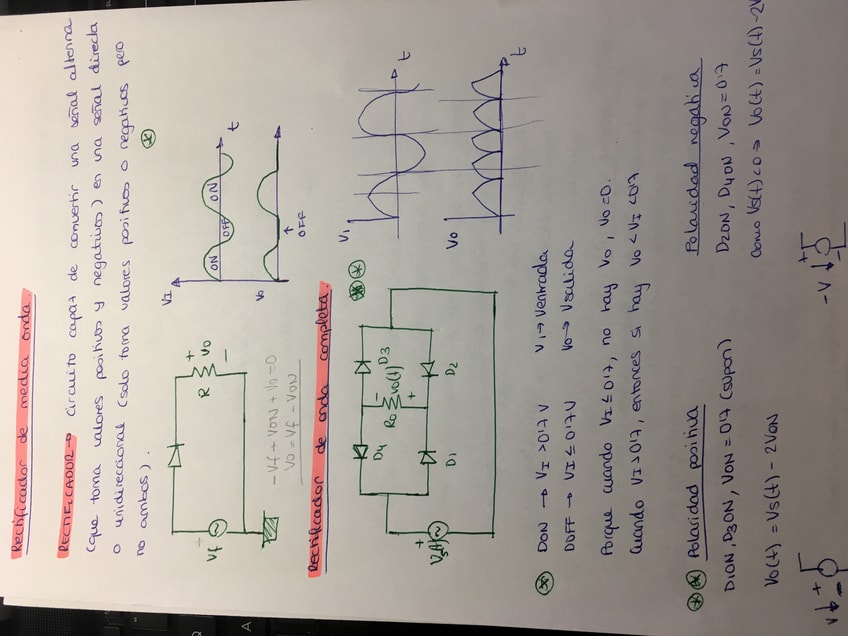 Rectificador de media onda.
RECTIFICADOR → Circuito capaz de convertir una señal alterna
(que toma valores positivos y negativos) en una señal directa
o unidireccional (solo toma valores positivos o negativos pero
no ambos).
*
Vf
+
R
+
Vo
-
-Vf + VON + Vo = 0
Vo = Vf - VON
VI
ON
OFF
ON
t
Vo
↑
OFF
Rectificador de onda completa.
**
+
Vs(t)
D4
D3
Ro
-
Vo(t)
+
D1
D2
VI
t
Vo
t
* DON → VI > 0'7 V
VI → Ventrada
DOFF → VI ≤ 0'7 V
Vo → Vsalida
Porque cuando VI ≤ 0'7, no hay Vo, Vo = 0.
Cuando VI > 0'7, entonces si hay Vo < VI < 0'7
** Polaridad positiva
D1ON, D3ON, VON = 0'7 (supon)
Vo(t) = Vs(t) - 2VON
V ↓ + -
Polaridad negativa
D2ON, D4ON, VON = 0'7
Como Vs(t) < 0 ⇒ Vo(t) = Vs(t) - 2V
-V ↓ + -